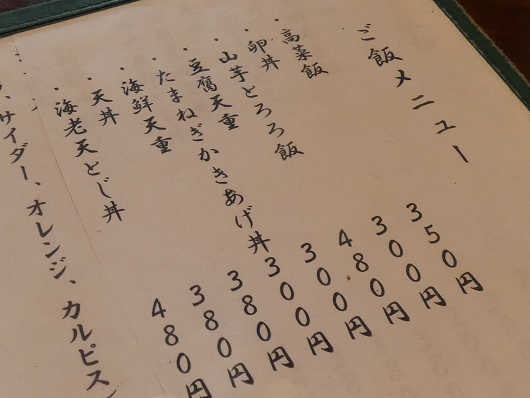 ご飯メニュー
・高菜飯 350円
・卵丼 300円
・山芋とろろ飯 480円
・豆腐天重 300円
・たまねぎかきあげ丼 300円
・海鮮天重 380円
・天丼 380円
・海老天とじ丼 480円
サイダー、オレンジ、カルピス